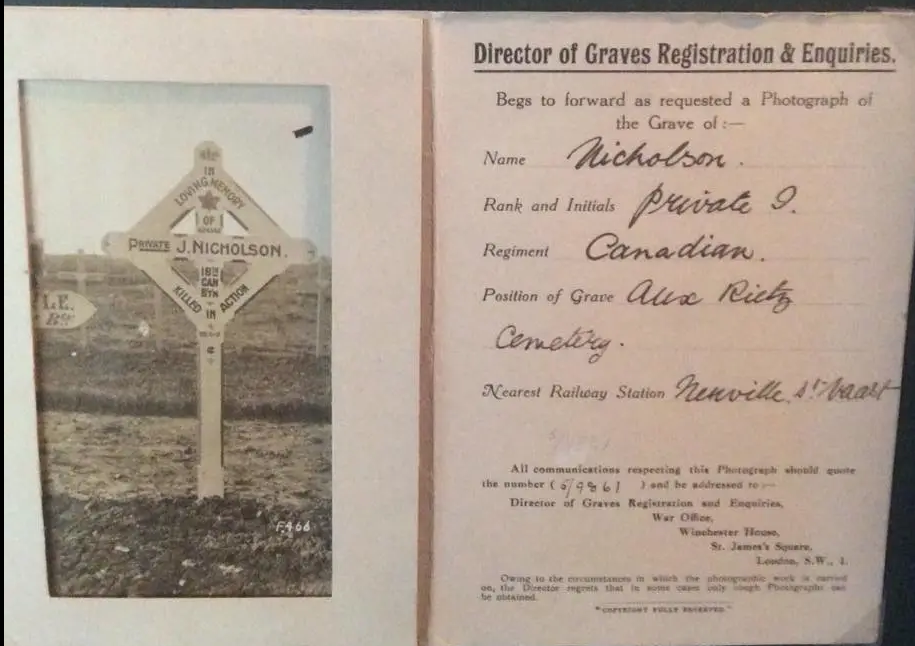 IN
LOVING MEMORY
OF
PRIVATE J. NICHOLSON.
18TH
CAN
BTN
KILLED IN ACTION
L.E.
F466
Director of Graves Registration & Enquiries.
Begs to forward as requested a Photograph of
the Grave of :—
Name Nicholson.
Rank and Initials Private J.
Regiment Canadian.
Position of Grave Aux Rietz
Cemetery.
Nearest Railway Station Neuville St Vaast
All communications respecting this Photograph should quote
the number (5/9861) and be addressed to :—
Director of Graves Registration and Enquiries,
War Office,
Winchester House,
St. James's Square,
London, S.W., 1.
Owing to the circumstances in which the photographic work is carried
on, the Director regrets that in some cases only rough Photographs can
be obtained.
"COPYRIGHT FULLY RESERVED."